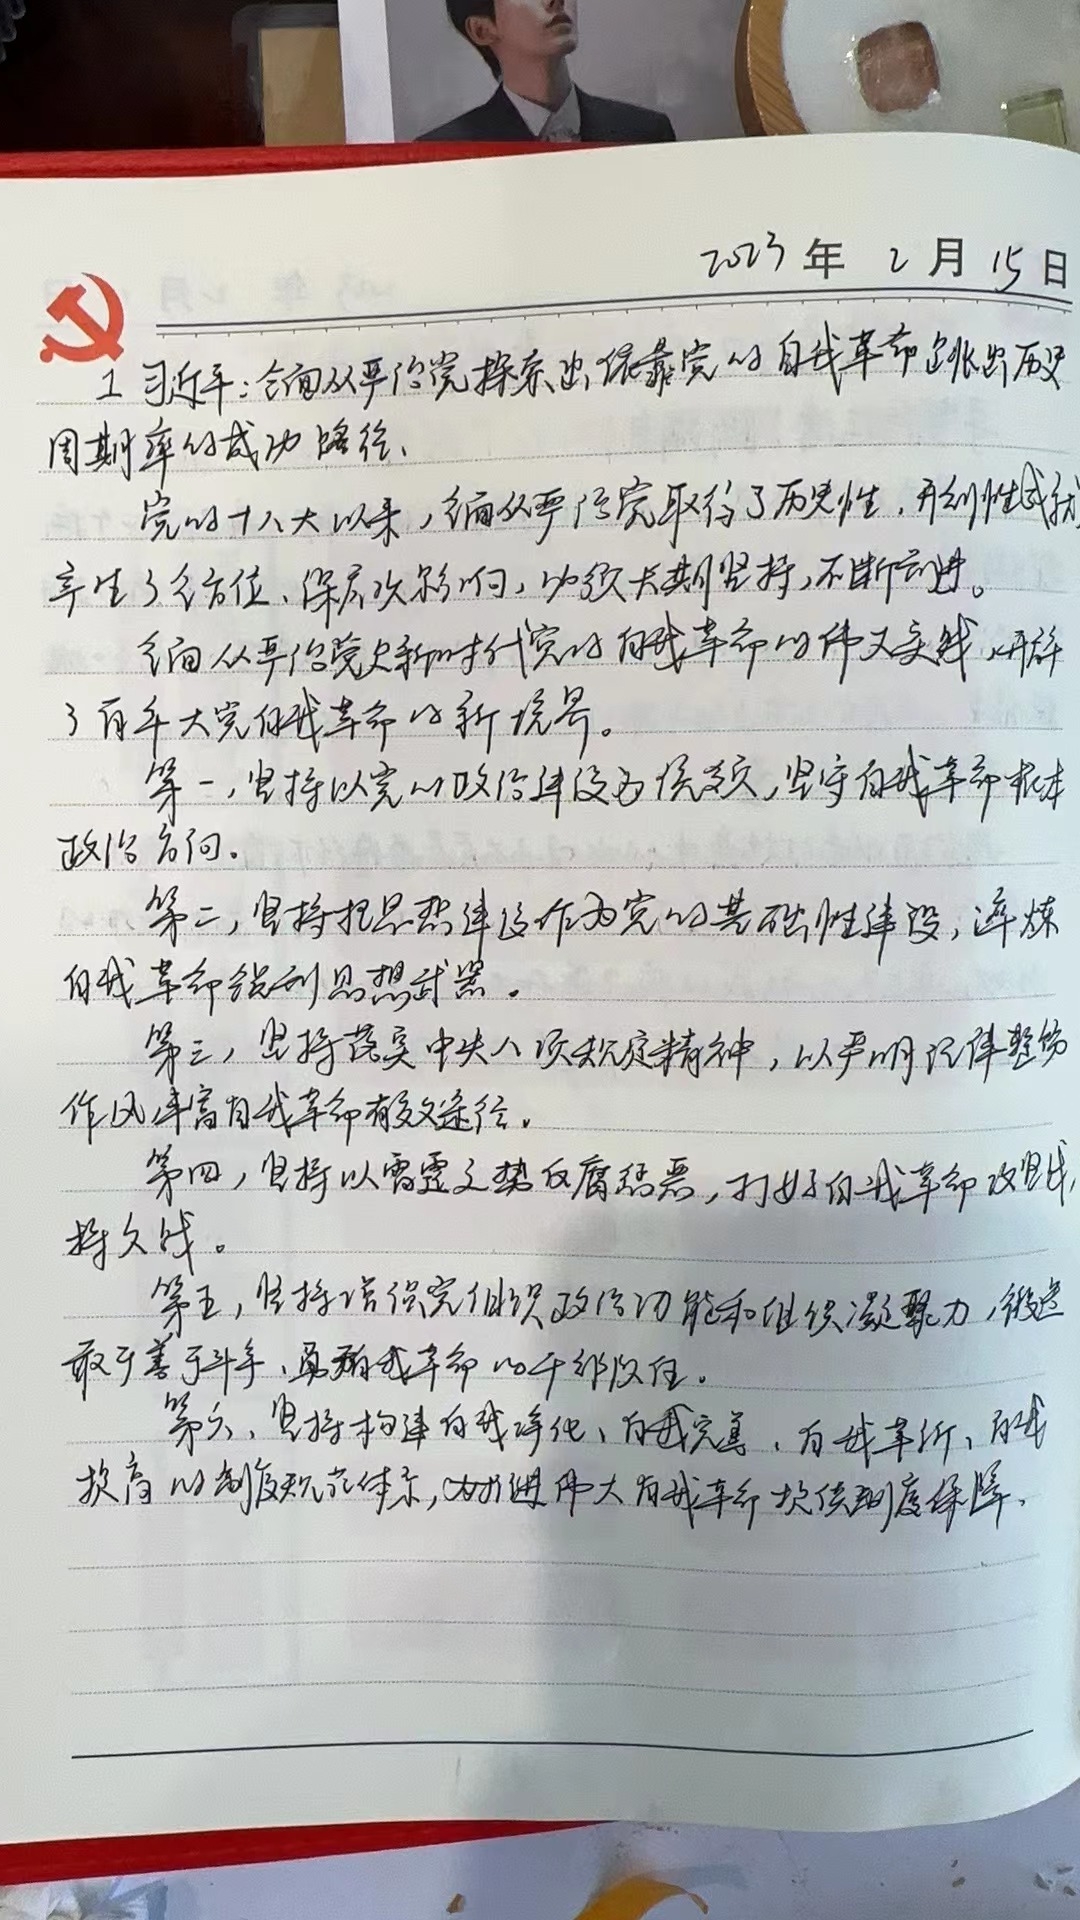 2023年2月15日
1 习近平：全面从严治党探索出依靠党的自我革命跳出历史
周期率的成功路径、
党的十八大以来，全面从严治党取得了历史性、开创性成就
产生了全方位、深层次影响，必须长期坚持，不断前进。
全面从严治党是新时代党的自我革命的伟大实践，开辟
了百年大党自我革命的新境界。
第一，坚持以党的政治建设为统领，坚守自我革命根本
政治方向。
第二，坚持把思想建设作为党的基础性建设，淬炼
自我革命锐利思想武器。
第三，坚持落实中央八项规定精神，以严明纪律整饬
作风，丰富自我革命有效途径。
第四，坚持以雷霆之势反腐惩恶，打好自我革命攻坚战、
持久战。
第五，坚持增强党组织政治功能和组织凝聚力，锻造
敢于善于斗争、勇于自我革命的干部队伍。
第六、坚持构建自我净化、自我完善、自我革新、自我
提高的制度规范体系，为推进伟大自我革命提供制度保障、